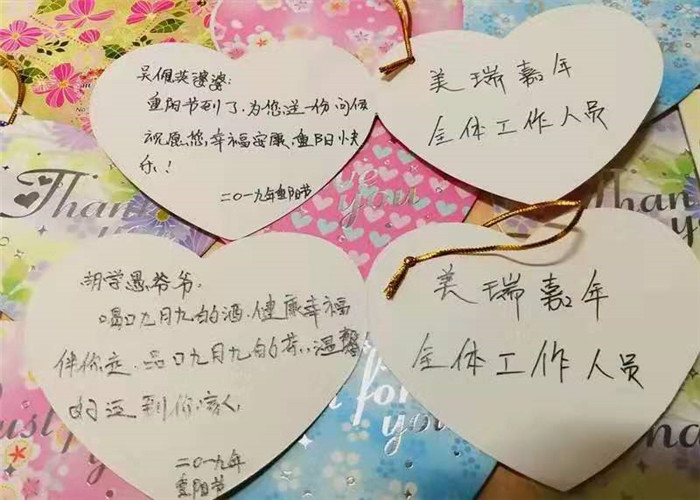 吴佩英婆婆:
重阳节到了,为您送一份问候
祝愿您,幸福安康,重阳快
乐!
二〇一九年重阳节
美瑞嘉年
全体工作人员
胡学愚爷爷,
喝口九月九的酒,健康幸福
伴你走,品口九月九的茶,温馨
的送到你家人,
二〇一九年
重阳节
美瑞嘉年
全体工作人员
Thank
you
Thank
you
Just for
for
you